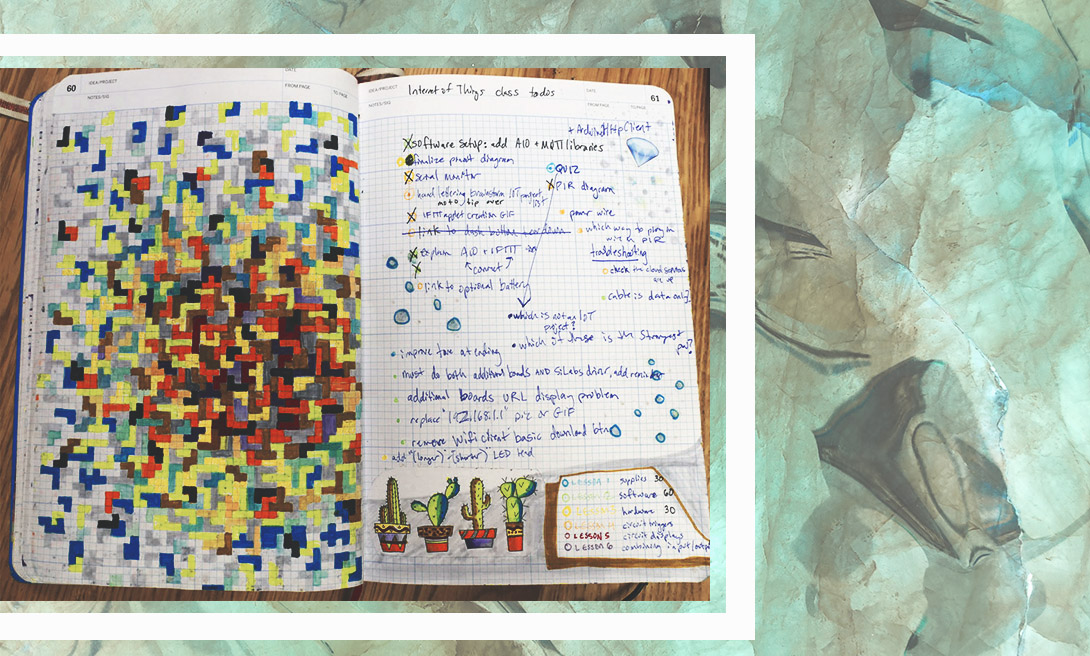 60
IDEA/PROJECT
NOTES/SIG
DATE
FROM PAGE
TO PAGE
IDEA/PROJECT
NOTES/SIG
Internet of Things class todos
DATE
FROM PAGE
TO PAGE
61
+ ArduinoHttpClient
X software setup: add AIO + MQTT libraries
finalize phot diagram
X serial monitor
hand lettering brainstorm IOT project, list
moto, tip over
X IFTTT applet creation GIF
link to dash button teardown
explain AIO + IFTTT
connect
link to optional battery
QUIZ
X PIR diagram
power wire
which way to plug in
with PIR
troubleshooting
check the cloud services
cable is data only?
• which is not an IoT
project?
• which of these is the strongest
improve tone at ending
must do both additional boards AND SiLabs driver, add
additional boards URL display problem
replace "192.168.1.1" pic or GIF
remove Wifi client basic download btn
add "(longer)" - "(shorter)" LED lead
LESSON 1 supplies 30
LESSON 2 software 60
LESSON 3 hardware 30
LESSON 4 circuit triggers
LESSON 5 circuit displays
LESSON 6 combining input/output